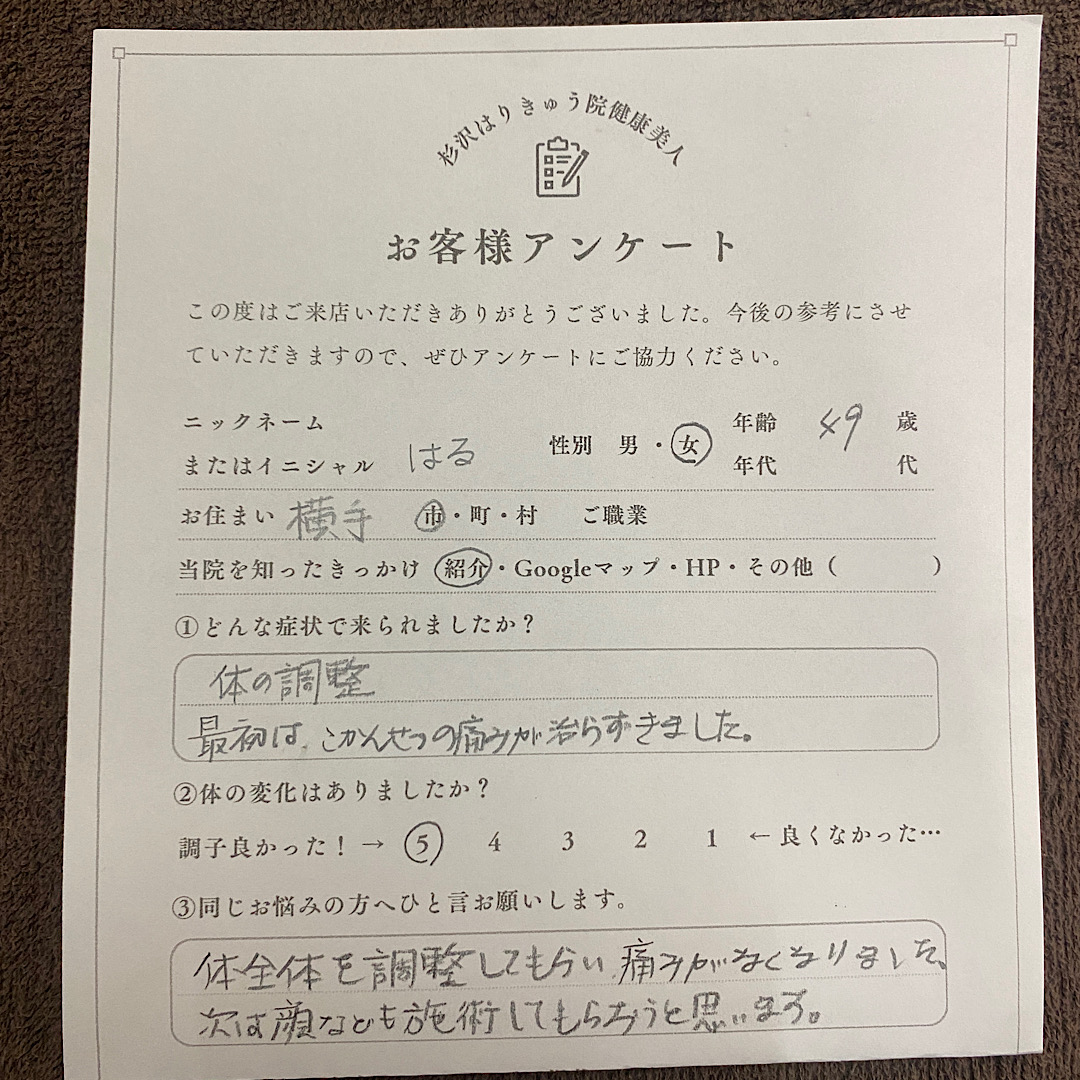 杉沢はりきゅう院健康美人
お客様アンケート
この度はご来店いただきありがとうございました。今後の参考にさせ
ていただきますので、ぜひアンケートにご協力ください。
ニックネーム
またはイニシャル はる 性別 男・女 年齢 年代 49 歳 代
お住まい 横手 市・町・村 ご職業
当院を知ったきっかけ 紹介・Googleマップ・HP・その他（ ）
①どんな症状で来られましたか？
体の調整
最初は、こかんせつの痛みが治らずきました。
②体の変化はありましたか？
調子良かった！→ 5 4 3 2 1 ←良くなかった…
③同じお悩みの方へひと言お願いします。
体全体を調整してもらい、痛みがなくなりました。
次は顔なども施術してもらおうと思います。